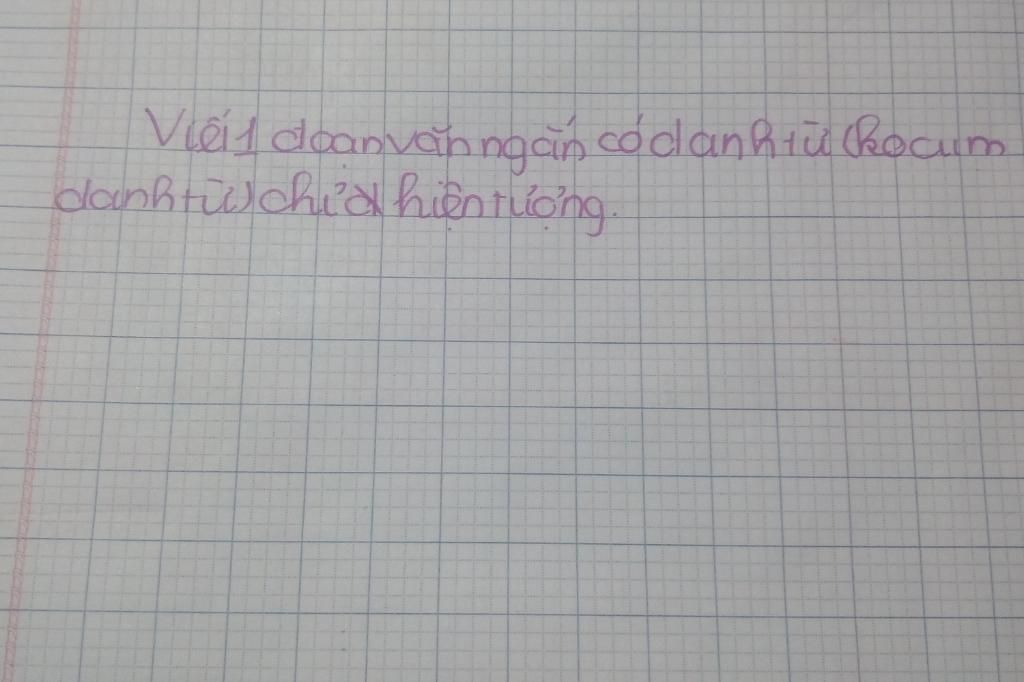 Viết 1 đoạn văn ngắn có danh từ (hoặc cụm
danh từ) chỉ hiện tượng.